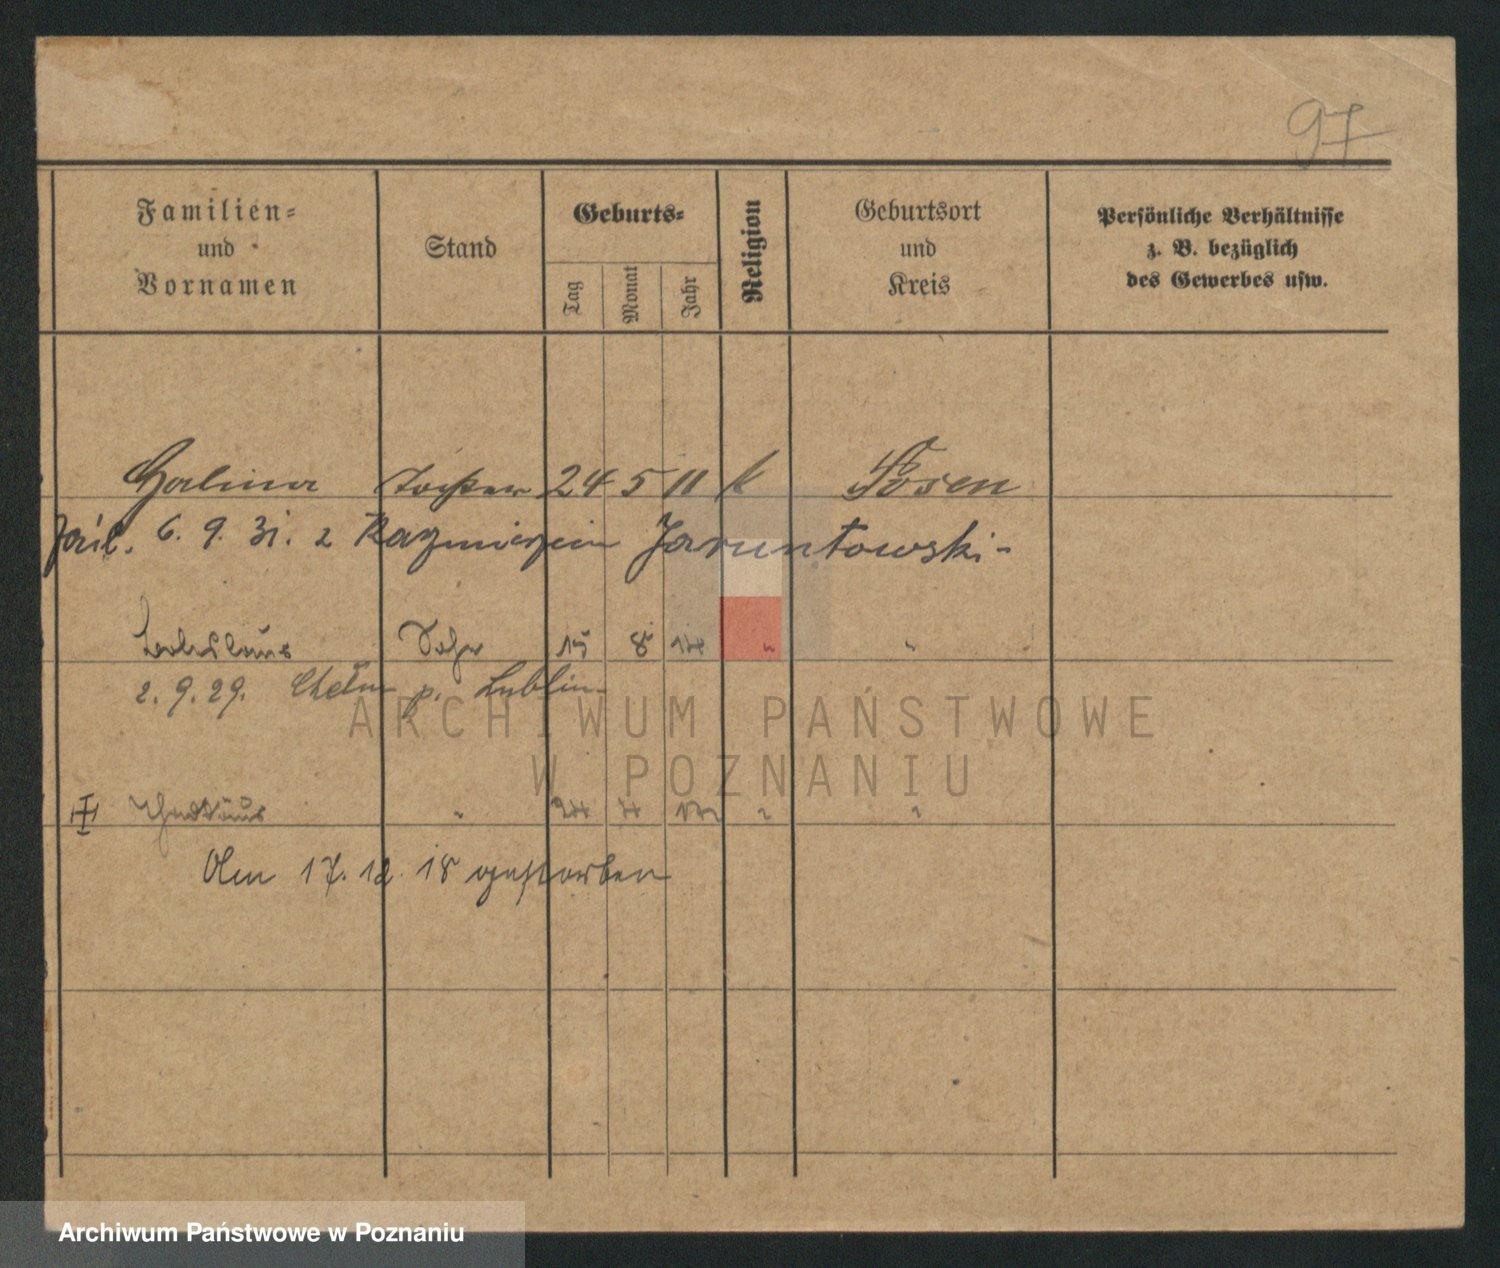 97
Familien=
und
Vornamen
Stand
Geburts=
Tag
Monat
Jahr
Religion
Geburtsort
und
Kreis
Persönliche Verhältnisse
z. B. bezüglich
des Gewerbes usw.
Halina Tochter 24 5 11 k Posen
6. 9. 31. z Kazmierzem Jaruntowski-
Sohn 15 8 14 " "
2. 9. 29. Chełm p. Lublin
" 24 4 " "
Am 17. 12. 18 gestorben
ARCHIWUM PAŃSTWOWE
W POZNANIU
Archiwum Państwowe w Poznaniu